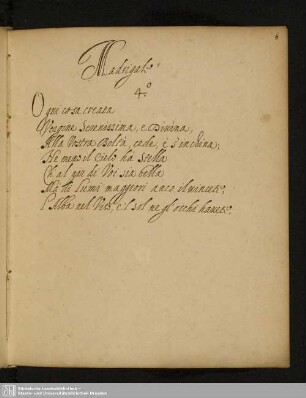 Madrigale
4.o
Ogni cosa creata
Vergine Serenissima, e Divina,
Alla Vostra Beltà, cede, e s'inchina;
Ne meno il Cielo ha Stella
Ch'al par di Voi sia bella
Ma li lumi maggiori anco
l'Alba nel e'l sol ne gl'occhi havete.